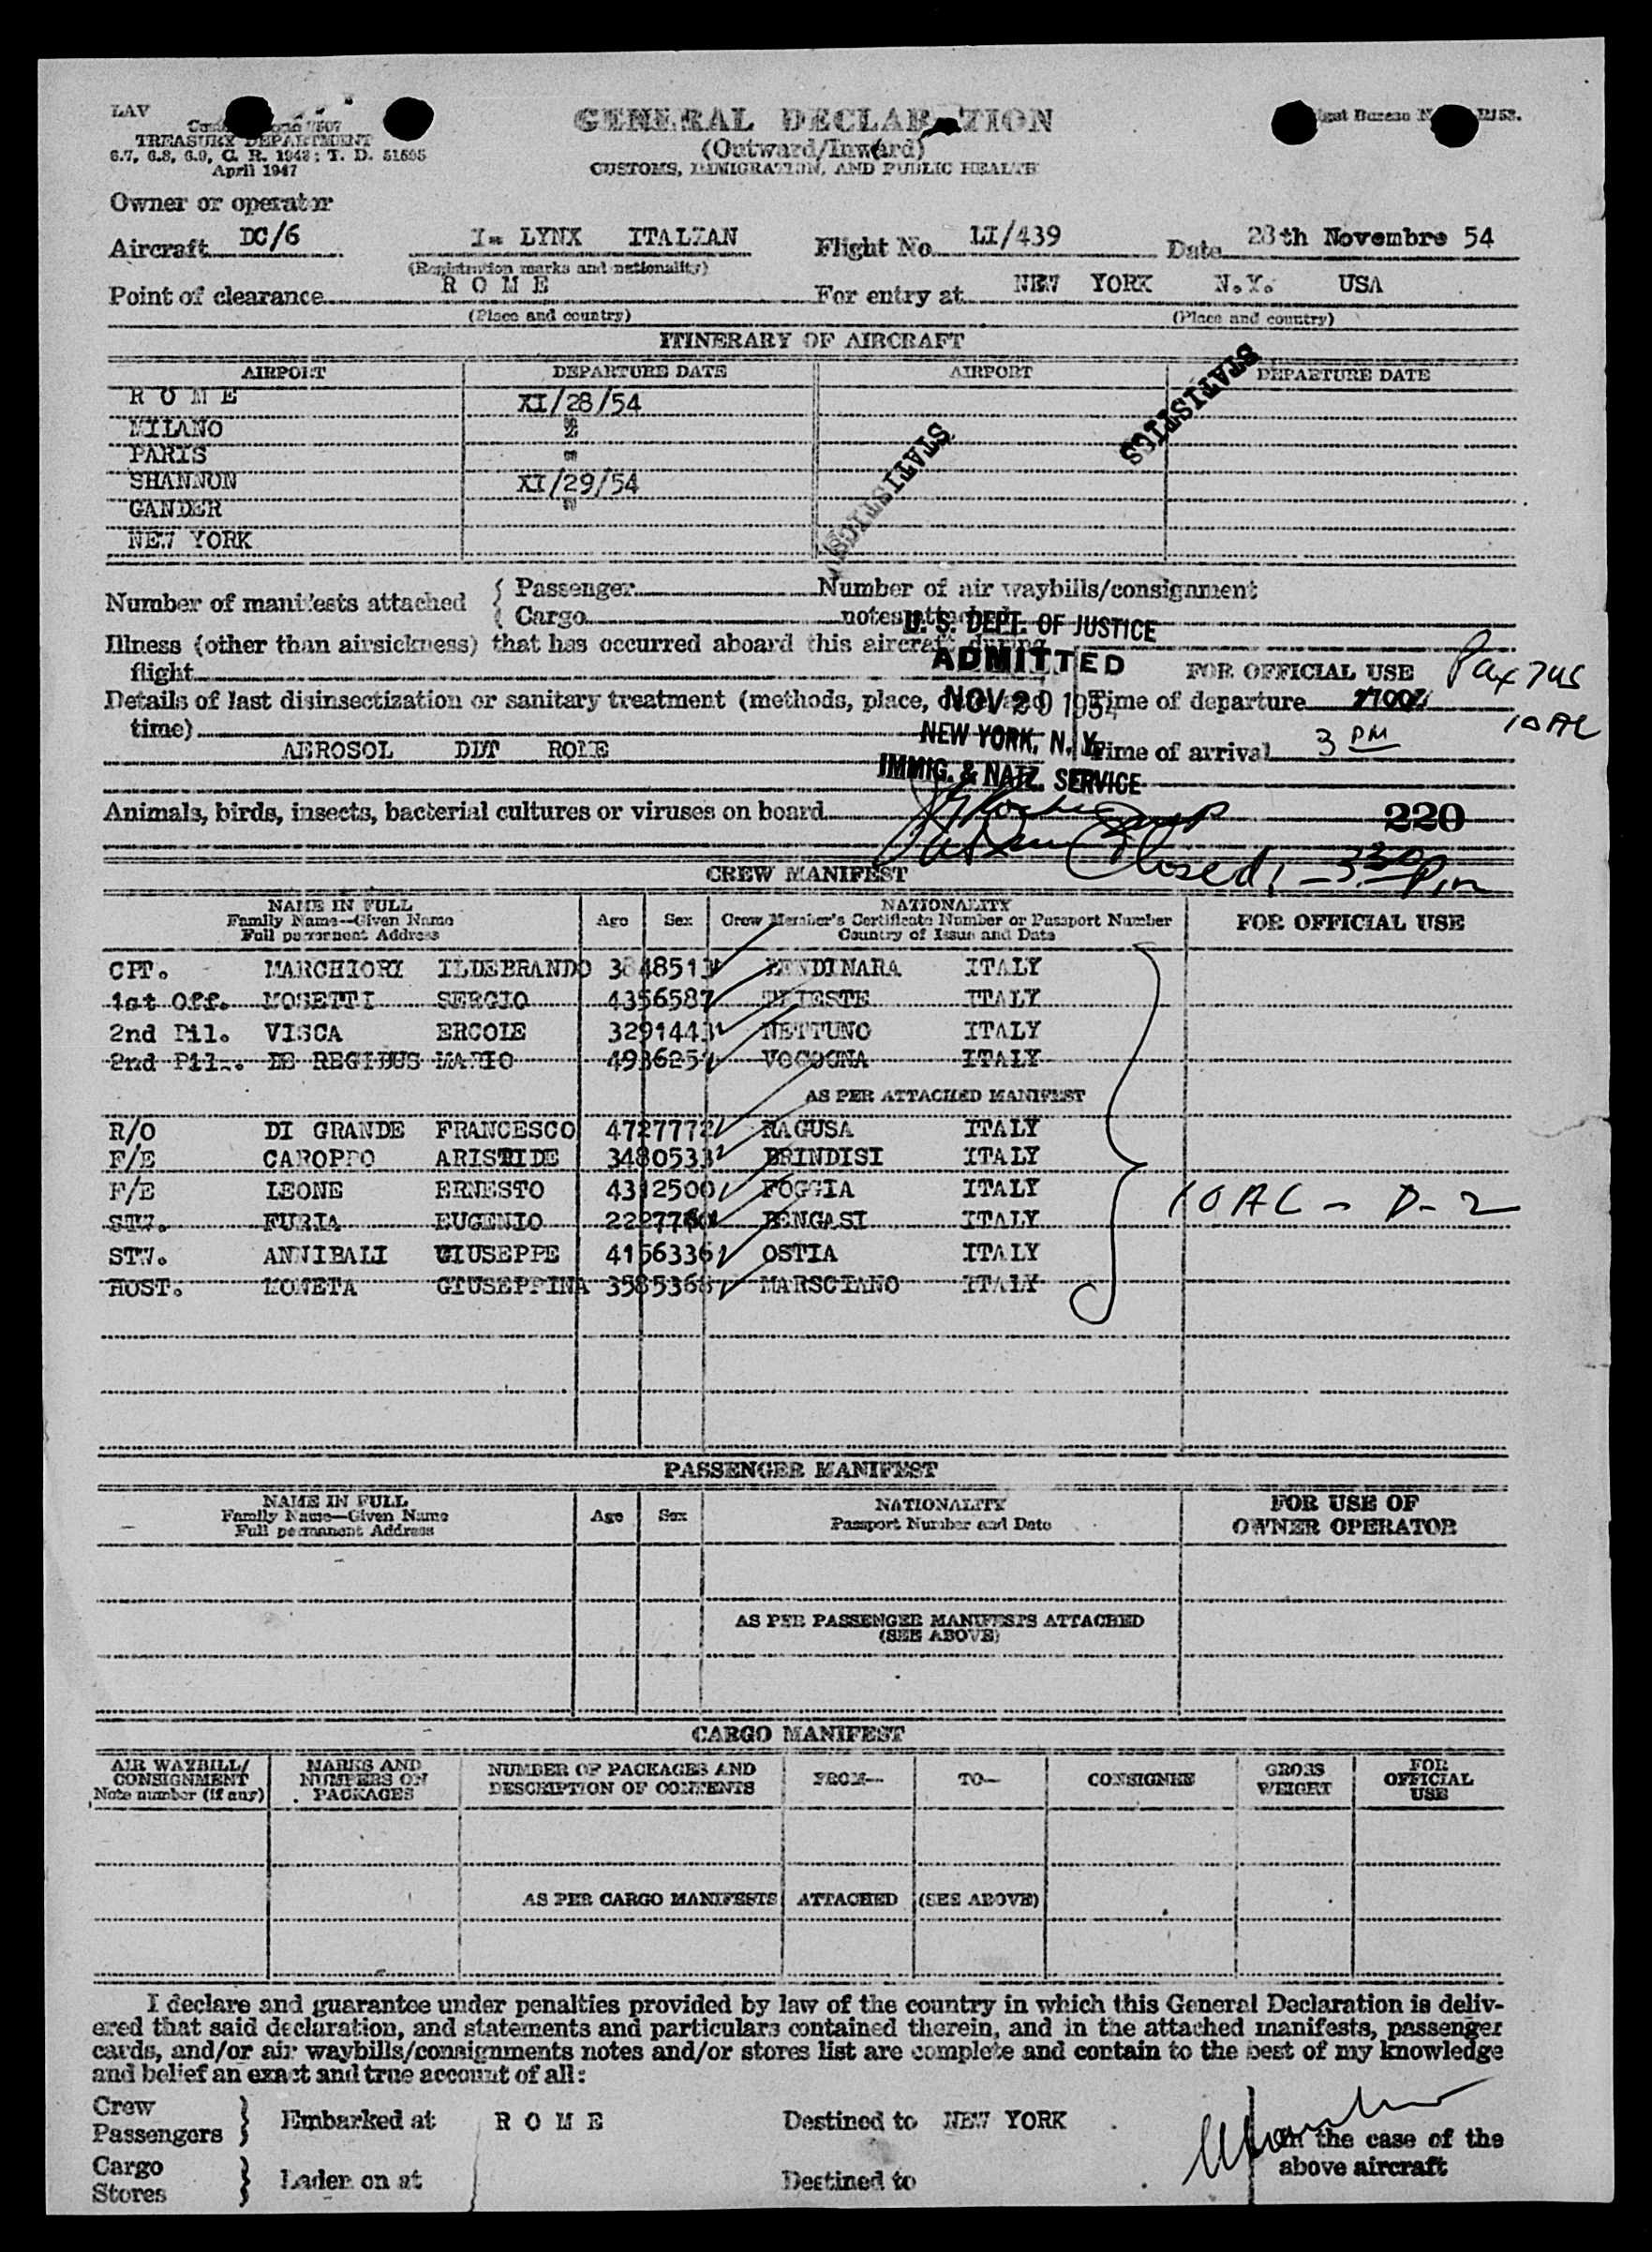 LAV
TREASURY DEPARTMENT
6.7, 6.8, 6.9, C. R. 1943; T. D. 51695
April 1947
GENERAL DECLARATION
(Outward/Inward)
CUSTOMS, IMMIGRATION, AND PUBLIC HEALTH
Owner or operator
Aircraft DC/6 I- LYNX ITALIAN Flight No. LI/439 Date 28th Novembre 54
(Registration marks and nationality)
Point of clearance R O M E For entry at NEW YORK N.Y. USA
(Place and country) (Place and country)
ITINERARY OF AIRCRAFT
AIRPORT DEPARTURE DATE AIRPORT DEPARTURE DATE
R O M E XI/28/54
MILANO "
PARIS "
SHANNON XI/29/54
GANDER "
NEW YORK
STATISTICS
STATISTICS
Number of manifests attached { Passenger Number of air waybills/consignment
Cargo notes attached
Illness (other than airsickness) that has occurred aboard this aircraft during
flight
U. S. DEPT. OF JUSTICE
ADMITTED
NOV 29 1954
NEW YORK, N. Y.
IMMIG. & NATZ. SERVICE
FOR OFFICIAL USE
Details of last disinsectization or sanitary treatment (methods, place, date and
time)
AEROSOL DDT ROME
Time of departure
Time of arrival 3 PM
10 AC
Animals, birds, insects, bacterial cultures or viruses on board
220
Closed, - 3 30 Pm
CREW MANIFEST
NAME IN FULL Age Sex NATIONALITY FOR OFFICIAL USE
Family Name--Given Name Crew Member's Certificate Number or Passport Number
Full permanent Address Country of Issue and Date
CPT. MARCHIORI ILDEBRANDO 3848511 LENDINARA ITALY
1st Off. MOSETTI SERGIO 4356587 TRIESTE ITALY
2nd Pil. VISCA ERCOLE 3291443 NETTUNO ITALY
2nd Pil. DE REGIBUS MARIO 4936251 VOGOGNA ITALY
AS PER ATTACHED MANIFEST
R/O DI GRANDE FRANCESCO 4727772 RAGUSA ITALY
F/E CAROPPO ARISTIDE 3480533 BRINDISI ITALY
F/E LEONE ERNESTO 4312500 FOGGIA ITALY
STW. FURIA EUGENIO BENGASI ITALY
STW. ANNIBALI GIUSEPPE 4156336 OSTIA ITALY
HOST. MONETA GIUSEPPINA 3585368 MARSCIANO ITALY
10 AC - D-2
PASSENGER MANIFEST
NAME IN FULL Age Sex NATIONALITY FOR USE OF
Family Name--Given Name Passport Number and Date OWNER OPERATOR
Full permanent Address
AS PER PASSENGER MANIFESTS ATTACHED
(SEE ABOVE)
CARGO MANIFEST
AIR WAYBILL/ MARKS AND NUMBER OF PACKAGES AND FROM-- TO-- CONSIGNEE GROSS FOR
CONSIGNMENT NUMBERS ON DESCRIPTION OF CONTENTS WEIGHT OFFICIAL
Note number (if any) PACKAGES USE
AS PER CARGO MANIFESTS ATTACHED (SEE ABOVE)
I declare and guarantee under penalties provided by law of the country in which this General Declaration is deliv-
ered that said declaration, and statements and particulars contained therein, and in the attached manifests, passenger
cards, and/or air waybills/consignments notes and/or stores list are complete and contain to the best of my knowledge
and belief an exact and true account of all:
Crew
Passengers } Embarked at R O M E Destined to NEW YORK
In the case of the
above aircraft
Cargo
Stores } Laden on at Destined to